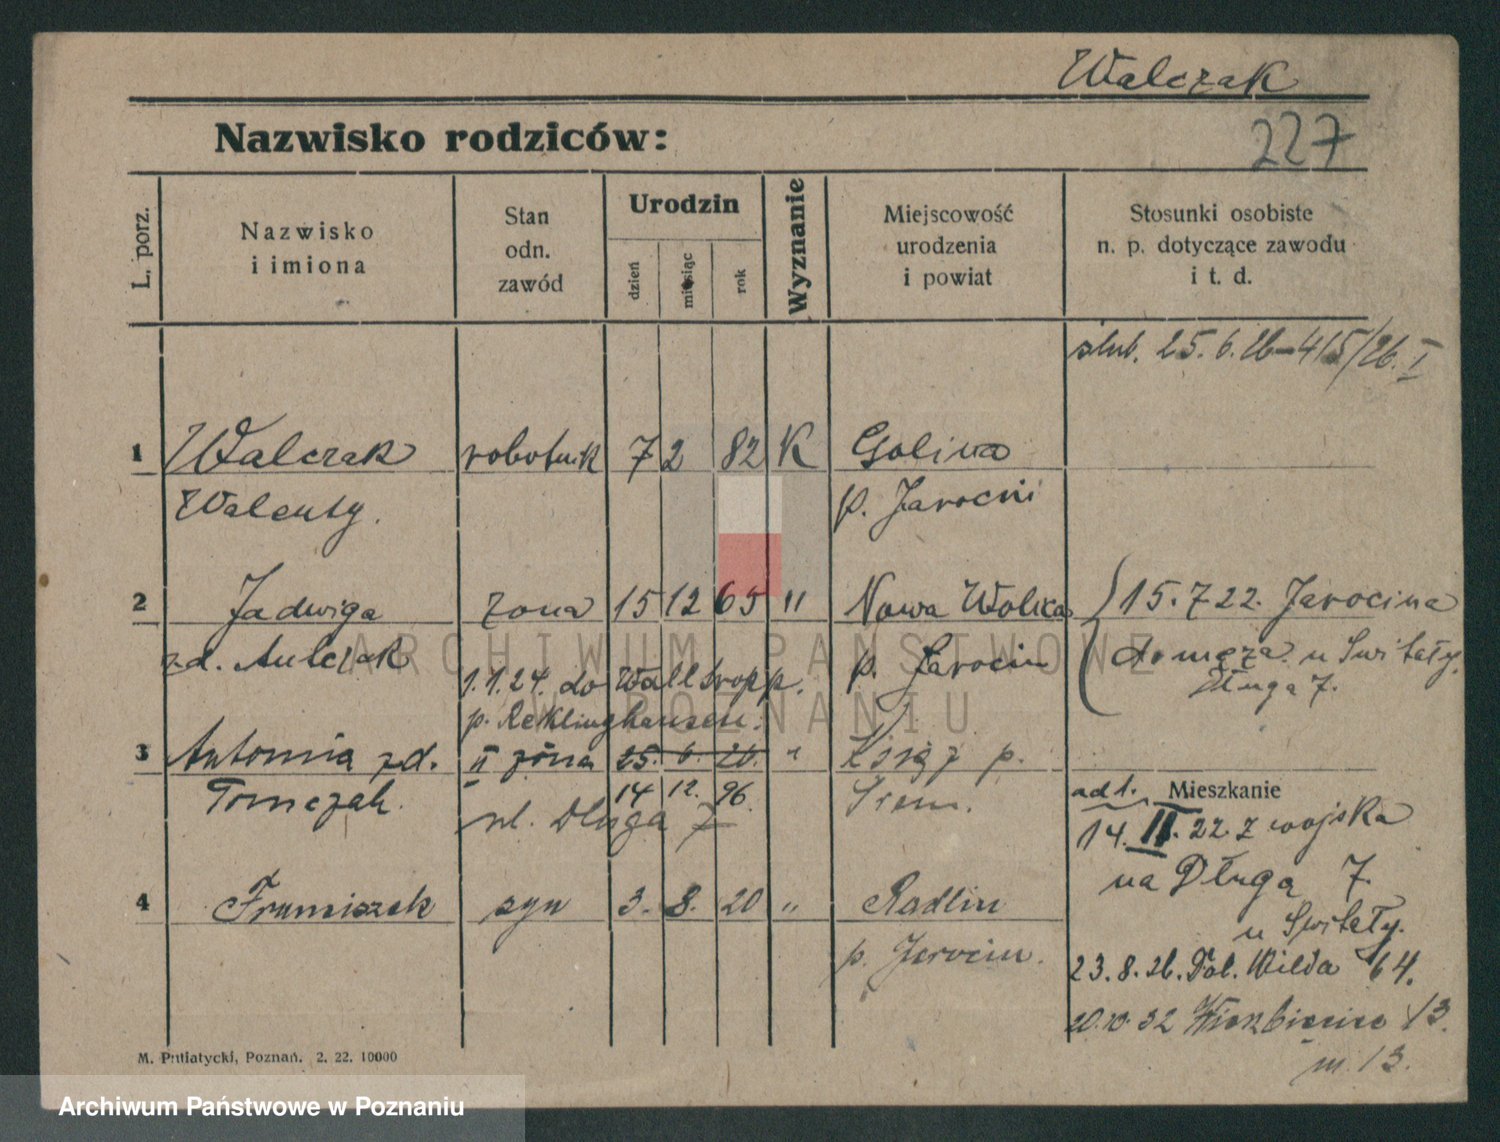 Walczak
Nazwisko rodziców:
227
L. porz.
Nazwisko
i imiona
Stan
odn.
zawód
Urodzin
dzień
miesiąc
rok
Wyznanie
Miejscowość
urodzenia
i powiat
Stosunki osobiste
n. p. dotyczące zawodu
i t. d.
ślub. 25. 6. 26 - 415/26. I
1 Walczak robotnik 7 2 82 K Golina
Walenty. p. Jarocin
2 Jadwiga żona 15 12 65 " Nowa Wolica 15. 7 22. Jarocina
zd. Aulczak p. Jarocin do męża u Świtały.
Długa 7.
1. 1. 24. do Waltropp.
p. Recklinghausen.
3 Antonina zd. II żona 25. 6. 26. " Książ p.
Tomczak. 14 12. 96. Śrem.
ul. Długa 7
Mieszkanie
ad 1.
14. II. 22. z wojska
na Długą 7.
u Świtały.
4 Franciszek syn 3. 8. 20 " Radlin
p. Jarocin.
23. 8. 26. Dol. Wilda 64.
20. 10. 32 Wierzbięcice 13.
m. 13.
M. Putiatycki, Poznań. 2. 22. 10000
ARCHIWUM PAŃSTWOWE
W POZNANIU
Archiwum Państwowe w Poznaniu